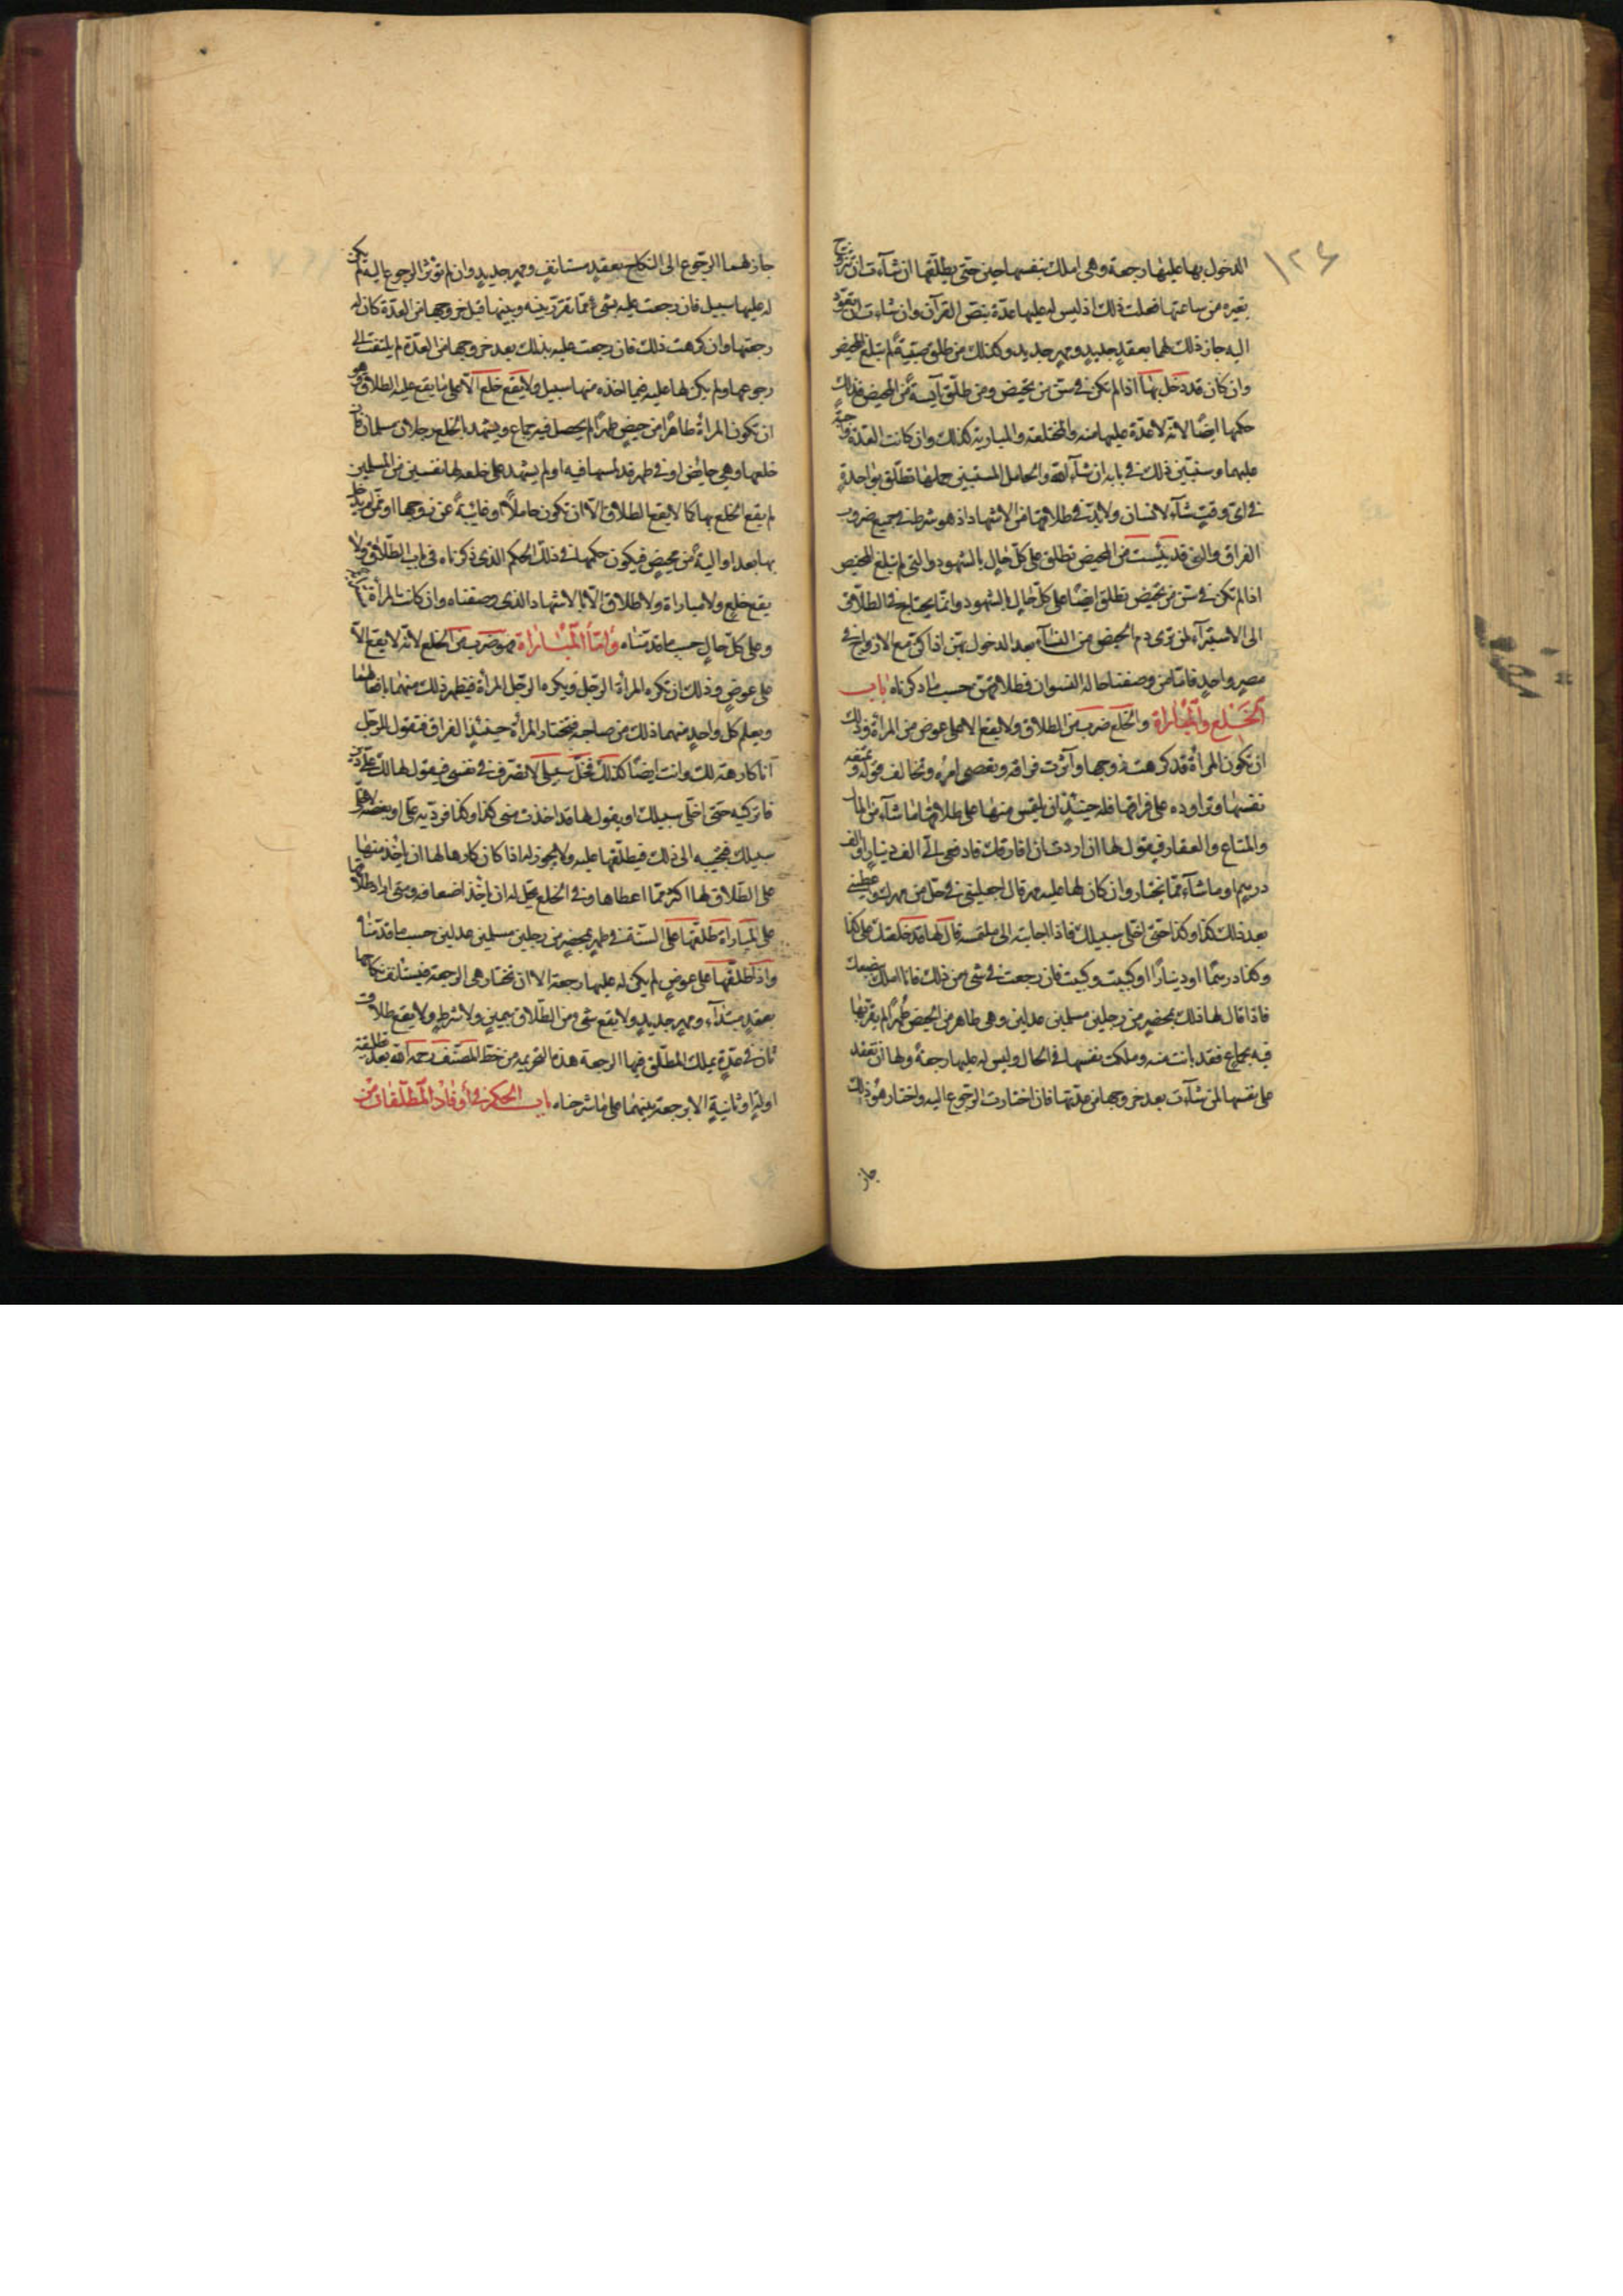 ١٢٤
الدخول بها عليها رجعة وهي املك بنفسها حين حتى يطلقها ان شاءت ان تتزوج
بغيره من ساعتها فعلت ذلك اذ ليس له عليها عدة بنص القرآن وان شاءت ان تعود
اليه جاز ذلك لهما بعقد جديد ومهر جديد وكذلك من طلق صبية لم تبلغ المحيض
وان كان قد دخل بها اذا لم تكن في سن من تحيض ومن طلق آيسة من المحيض فذلك
حكمها ايضا لانه لا عدة عليها منه والمختلعة والمبارية كذلك وان كانت العدة واجبة
عليهما وسنبين ذلك في بابه ان شاء الله والحامل المستبين حملها تطلق بواحدة
في اي وقت شاء الانسان ولا بد في طلاقها من الاشهاد اذ هو شرط في جميع ضروب
الفراق والتي قد يئست من المحيض تطلق على كل حال بالشهود والتي لم تبلغ المحيض
اذا لم تكن في سن من تحيض تطلق ايضا على كل حال بالشهود وانما يحتاج في الطلاق
الى الاستبراء لمن ترى دم الحيض من النساء بعد الدخول بهن اذا كن مع الازواج في
مصر واحد فاما من وصفنا حاله من النسوان فطلاقهن حسب ما ذكرناه باب
الخلع والمباراة والخلع ضرب من الطلاق ولا يقع الا على عوض من المرأة وذلك
ان تكون المرأة قد كرهت زوجها وآثرت فراقه وتعصي امره وتخالف قوله وتمنعه
نفسها وتراوده على فراقها فله حينئذ ان يلتمس منها على طلاقها ما شاء من المال
والمتاع والعقار فيقول لها ان اردت ان افارقك فادفعي الي الف دينار او الف
درهم او ما شاء مما يختار وان كان لها عليه مهر قال اجعليني في حل من مهرك واعطيني
بعد ذلك كذا وكذا حتى اخلي سبيلك فاذا اجابته الى ملتمسه قال لها قد خلعتك على كذا
وكذا درهما او دينارا او كيت وكيت فان رجعت في شيء من ذلك فانا املك ببضعك
فاذا قال لها ذلك بمحضر من رجلين مسلمين عدلين وهي طاهر من الحيض طهرا لم يقربها
فيه بجماع فقد بانت منه وملكت نفسها في الحال وليس له عليها رجعة ولها ان تعقد
على نفسها لمن شاءت بعد خروجها من عدتها فان اختارت الرجوع اليه واختار هو ذلك
جاز
جاز لهما الرجوع الى النكاح بعقد مستانف ومهر جديد وان لم تؤثر الرجوع اليه لم يكن
له عليها سبيل فان رجعت عليه بشيء مما تقرر بينه وبينها قبل خروجها من العدة كان له
رجعتها وان كرهت ذلك فان رجعت عليه بذلك بعد خروجها من العدة لم يلتفت الى
رجوعها ولم يكن لها عليه فيما اخذه منها سبيل ولا يقع خلع الا على ما يقع عليه الطلاق وهو
ان تكون المرأة طاهرا من حيض طهرا لم يحصل فيه جماع ويشهد بالخلع رجلان مسلمان فان
خلعها وهي حايض او في طهر قد لمسها فيه او لم يشهد على خلعه لها نفسين من المسلمين
لم يقع الخلع بها كما لا يقع الطلاق الا ان تكون حاملا او غائبة عن زوجها او ممن لم يدخل
بها بعد او آيسة من محيض فيكون حكمها في ذلك الحكم الذي ذكرناه في باب الطلاق ولا
يقع خلع ولا مباراة ولا طلاق الا بالاشهاد الذي وصفناه وان كانت المرأة
وعلى كل حال حسب ما قدمناه واما المباراة فهو ضرب من الخلع لانه لا يقع الا
على عوض وذلك ان تكره المرأة الرجل ويكره الرجل المرأة فيظهر ذلك منهما بافعالهما
ويعلم كل واحد منهما ذلك من صاحبه فتختار المرأة حينئذ الفراق فتقول للرجل
انا كارهة لك وانت ايضا كذلك فخل سبيلي لاتصرف في نفسي فيقول لها لك علي دين
فاتركيه حتى اخلي سبيلك او يقول لها قد اخذت مني كذا وكذا فرديه علي او بعضه لاخلي
سبيلك فتجيبه الى ذلك فيطلقها عليه ولا يجوز له اذا كان كارها لها ان يأخذ منها
على الطلاق لها اكثر مما اعطاها وفي الخلع يحل له ان يأخذ اضعافه ومتى اراد طلاقها
على المباراة طلقها على السنة في طهر بمحضر من رجلين مسلمين عدلين حسب ما قدمناه
واذا طلقها على عوض لم يكن له عليها رجعة الا ان تختار هي الرجعة فيستانف نكاحها
بعقد مبتداء ومهر جديد ولا يقع شيء من الطلاق بيمين ولا شرط ولا يقع طلاق
ثان في عدة يملك المطلق فيها الرجعة هذه التخريجه من خط المصنف رحمه الله بعد تطليقة
اولة او ثانية الا برجعة بينهما على ما شرحناه باب الحكم في اولاد المطلقات من